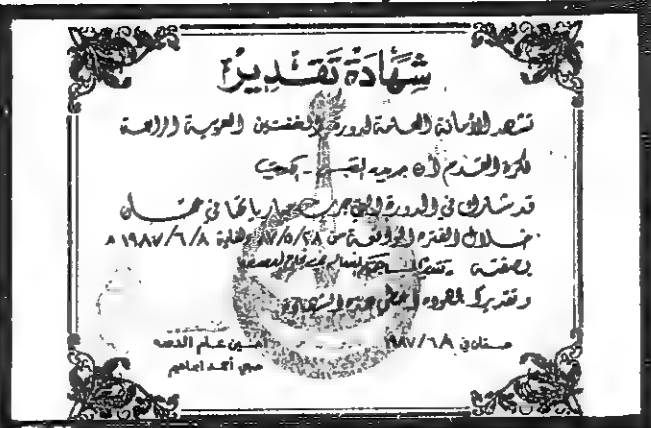 شهادة تقدير
تشهد الأمانة العامة لدورة الخفتين العربية الرابعة
لكرة القدم أن جريدة القبس - الكويت
قد شارك في الدورة التي جرت مبارياتها في عمان
خلال الفترة الواقعة من ٨٧/٥/٢٨ ولغاية ١٩٨٧/٦/٨ م
بصفته
وتقديراً لجهوده أعطي هذه الشهادة
عمان في ٩٨٧/٦/٨
أمين عام الدورة
أحمد ابراهيم